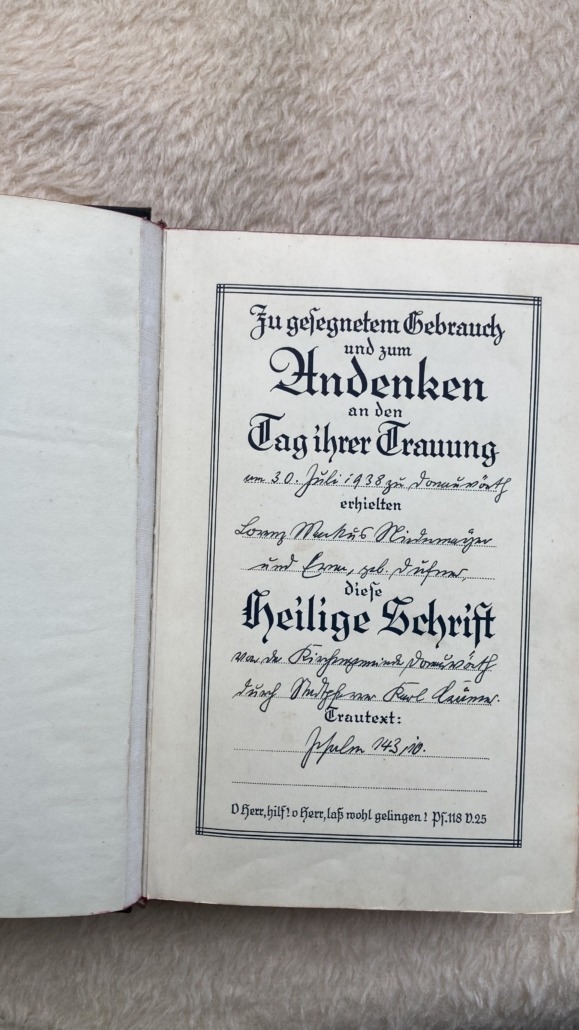 Zu gesegnetem Gebrauch
und zum
Andenken
an den
Tag ihrer Trauung
am 30. Juli 1938 zu Donauwörth
erhielten
Lorenz Markus Niedermayer
und Erna, geb. Dufner,
diese
Heilige Schrift
von der Kirchengemeinde Donauwörth
durch Stadtpfarrer Karl
Trautext:
Psalm 143,10.
O Herr, hilf! o Herr, laß wohl gelingen! Ps. 118 V. 25